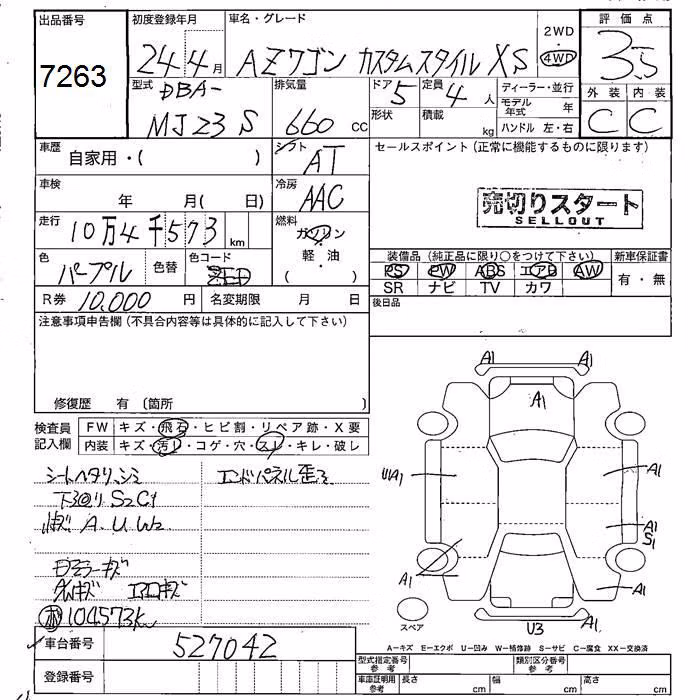 出品番号
7263
初度登録年月
24年4月
車名・グレード
AZワゴン カスタムスタイル XS
2WD
4WD
評価点
3.5
外装 内装
C C
型式
DBA-
MJ23S
排気量
660 cc
ドア 5
形状
定員 4 人
積載 kg
ディーラー・並行
モデル年式 年
ハンドル 左・右
車歴
自家用・( )
シフト
AT
セールスポイント(正常に機能するものに限ります)
売切りスタート
SELLOUT
車検
年 月( 日)
冷房
AAC
走行
10万4千573 km
燃料
ガソリン
・
軽・油
( )
色
パープル
色替
色コード
ZED
装備品(純正品に限り○をつけて下さい)
新車保証書
PS PW ABS エアB AW
SR ナビ TV カワ
有・無
R券 10,000 円
名変期限 月 日
後日品
注意事項申告欄(不具合内容等は具体的に記入して下さい)
修復歴 有 (箇所 )
検査員
記入欄
FW キズ・飛石・ヒビ割・リペア跡・X要
内装 キズ・汚レ・コゲ・穴・スレ・キレ・破レ
シートヘタリ、シミ
エンドパネル歪ミ
下回り S2C1
A.U.W2
ミラーキズ
エアロキズ
104573km
車台番号
527042
登録番号
A1 A1
A1
UA1
A1
A1
S1
A1
A1
U3
スペア
A-キズ E-エクボ U-凹み W-補修跡 S-サビ C-腐食 XX-交換済
型式指定番号
参考
類別区分番号
参考
車庫証明用
参考
長さ cm
幅 cm
高さ cm